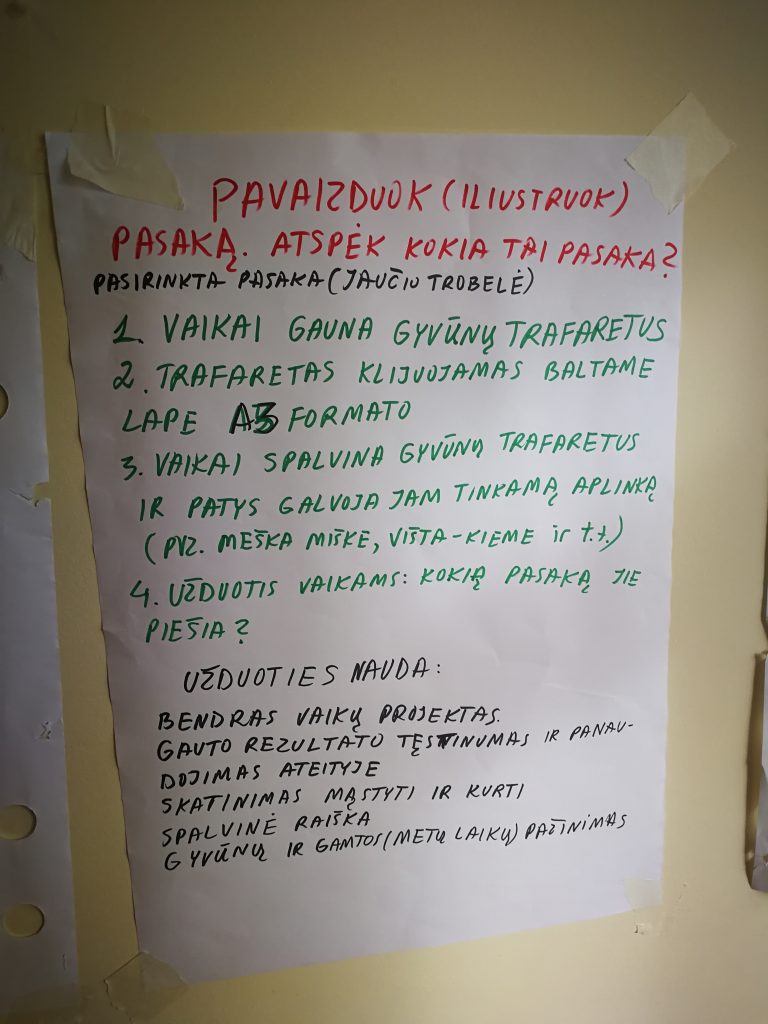 PAVAIZDUOK (ILIUSTRUOK)
PASAKĄ. ATSPĖK KOKIA TAI PASAKA?
PASIRINKTA PASAKA (JAUČIO TROBELĖ)
1. VAIKAI GAUNA GYVŪNŲ TRAFARETUS
2. TRAFARETAS KLIJUOJAMAS BALTAME
LAPE A3 FORMATO
3. VAIKAI SPALVINA GYVŪNŲ TRAFARETUS
IR PATYS GALVOJA JAM TINKAMĄ APLINKĄ
(PVZ. MEŠKA MIŠKE, VIŠTA - KIEME ir t.t.)
4. UŽDUOTIS VAIKAMS: KOKIĄ PASAKĄ JIE
PIEŠIA?
UŽDUOTIES NAUDA:
BENDRAS VAIKŲ PROJEKTAS.
GAUTO REZULTATO TĘSTINUMAS IR PANAU-
DOJIMAS ATEITYJE
SKATINIMAS MĄSTYTI IR KURTI
SPALVINĖ RAIŠKA
GYVŪNŲ IR GAMTOS (METŲ LAIKŲ) PAŽINIMAS